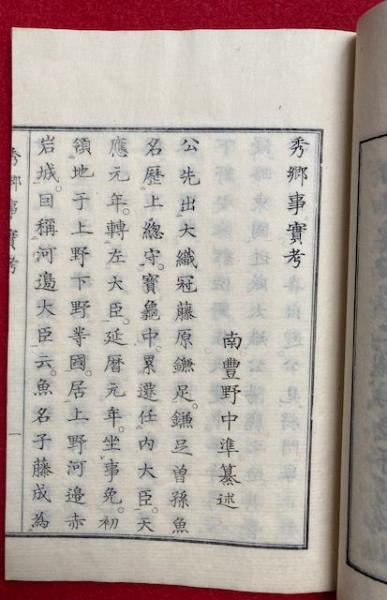 秀郷事實考
南豐野中準纂述
公先出大織冠藤原鎌足。鎌足曽孫魚
名歷上總守。寶龜中。累遷任内大臣。天
應元年。轉左大臣。延曆元年。坐事免。初
領地于上野下野等國。居上野河邊赤
岩城。因稱河邊大臣云。魚名子藤成為
秀鄉事實考
一